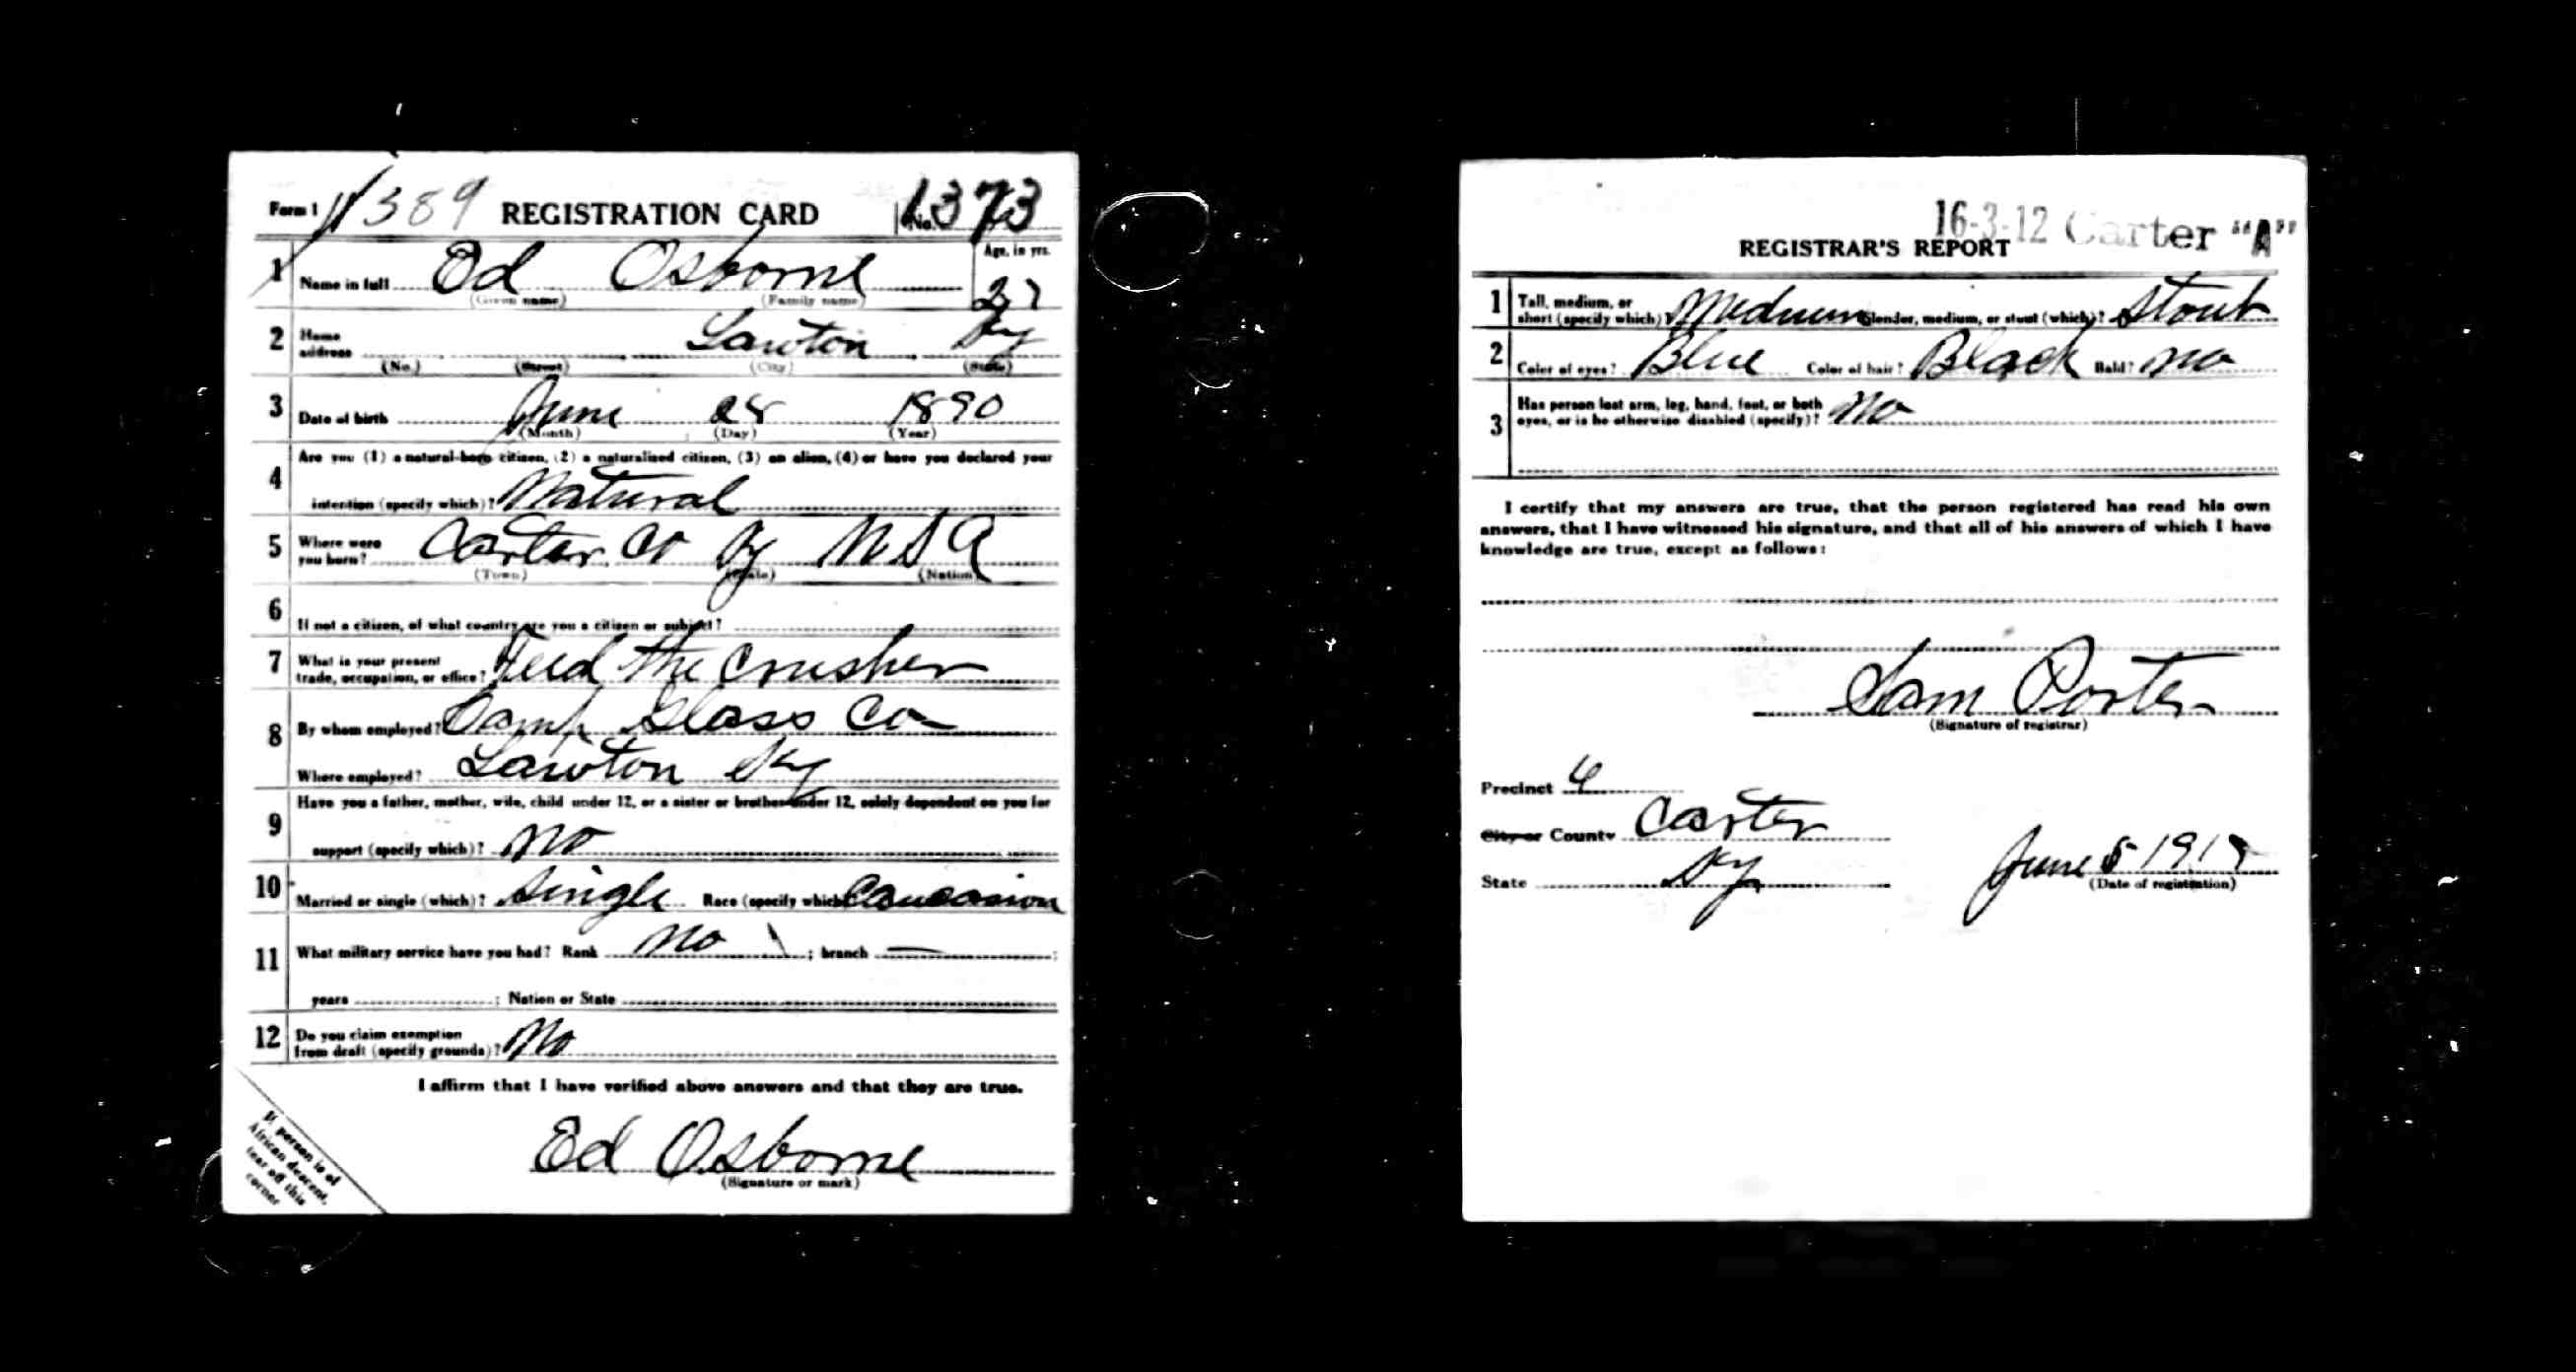 Form 1 1389 REGISTRATION CARD No. 1373
1 Name in full Ed Osborne Age, in yrs. 27
(Given name) (Family name)
2 Home address Lawton Ky
(No.) (Street) (City) (State)
3 Date of birth June 28 1890
(Month) (Day) (Year)
4 Are you (1) a natural-born citizen, (2) a naturalized citizen, (3) an alien, (4) or have you declared your
intention (specify which)? Natural
5 Where were you born? Carter Co Ky USA
(Town) (State) (Nation)
6 If not a citizen, of what country are you a citizen or subject?
7 What is your present trade, occupation, or office? Feed the Crusher
8 By whom employed? Camp Glass Co
Where employed? Lawton Ky
9 Have you a father, mother, wife, child under 12, or a sister or brother under 12, solely dependent on you for
support (specify which)? No
10 Married or single (which)? Single Race (specify which)? Caucasion
11 What military service have you had? Rank No ; branch — ;
years ; Nation or State
12 Do you claim exemption from draft (specify grounds)? No
I affirm that I have verified above answers and that they are true.
Ed Osborne
(Signature or mark)
If person is of
African descent,
tear off this
corner
16-3-12 Carter "A"
REGISTRAR'S REPORT
1 Tall, medium, or short (specify which)? Medium Slender, medium, or stout (which)? Stout
2 Color of eyes? Blue Color of hair? Black Bald? No
3 Has person lost arm, leg, hand, foot, or both
eyes, or is he otherwise disabled (specify)? No
I certify that my answers are true, that the person registered has read his own
answers, that I have witnessed his signature, and that all of his answers of which I have
knowledge are true, except as follows:
Sam Porter
(Signature of registrar)
Precinct
City or County Carter
State Ky June 5 1917
(Date of registration)